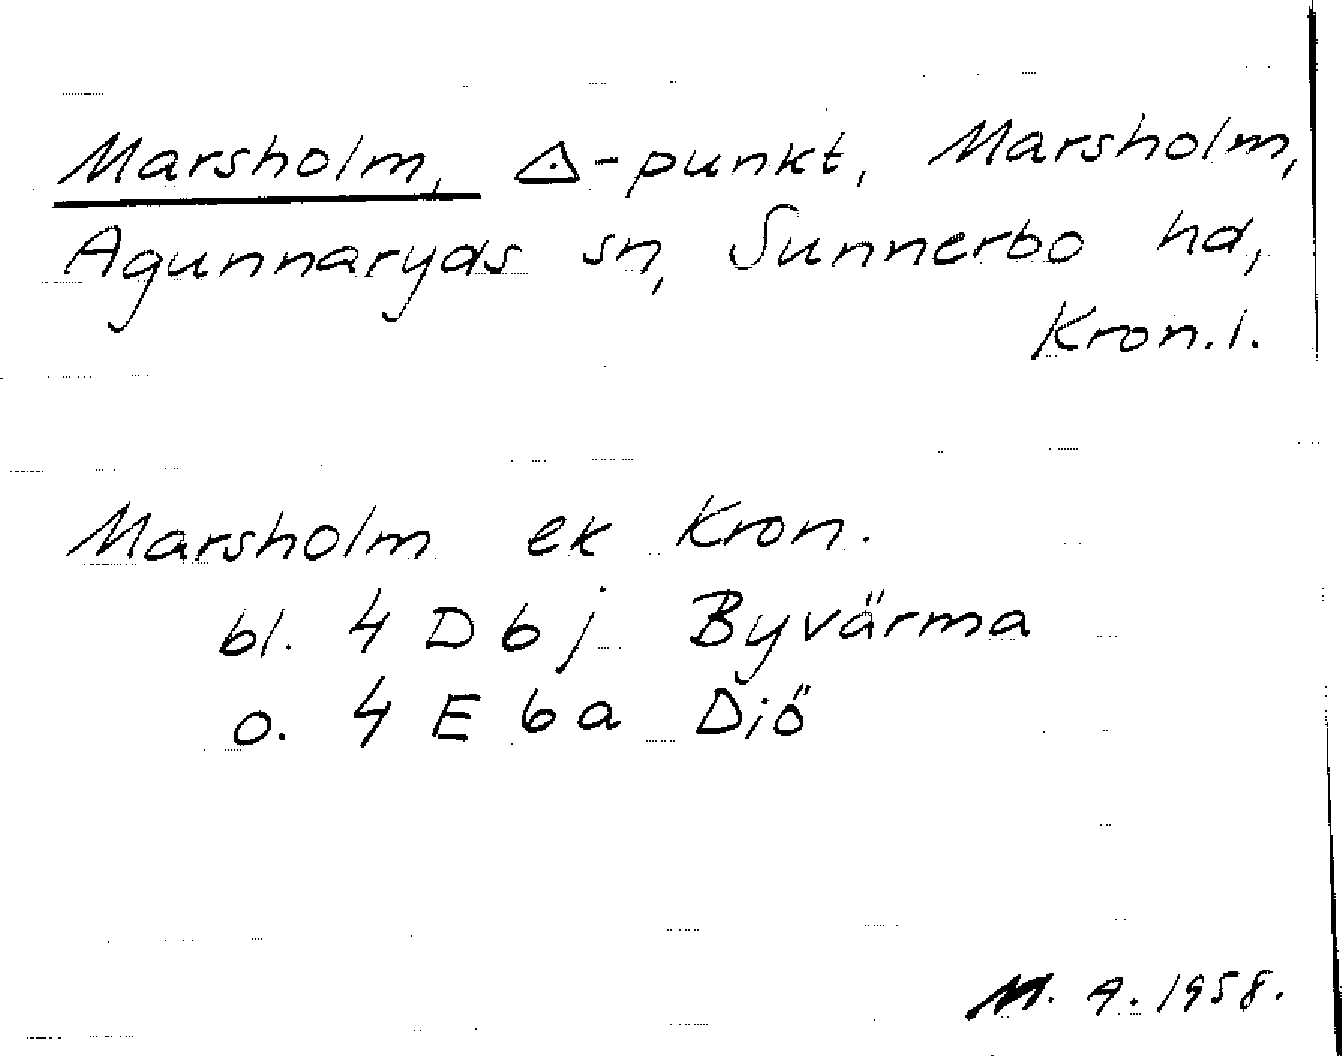 Marsholm, △-punkt, Marsholm,
Agunnaryds sn, Sunnerbo hd,
Kron.l.
Marsholm ek Kron.
bl. 4 D 6 j Byvärma
o. 4 E 6 a Diö
M. A. 1958.